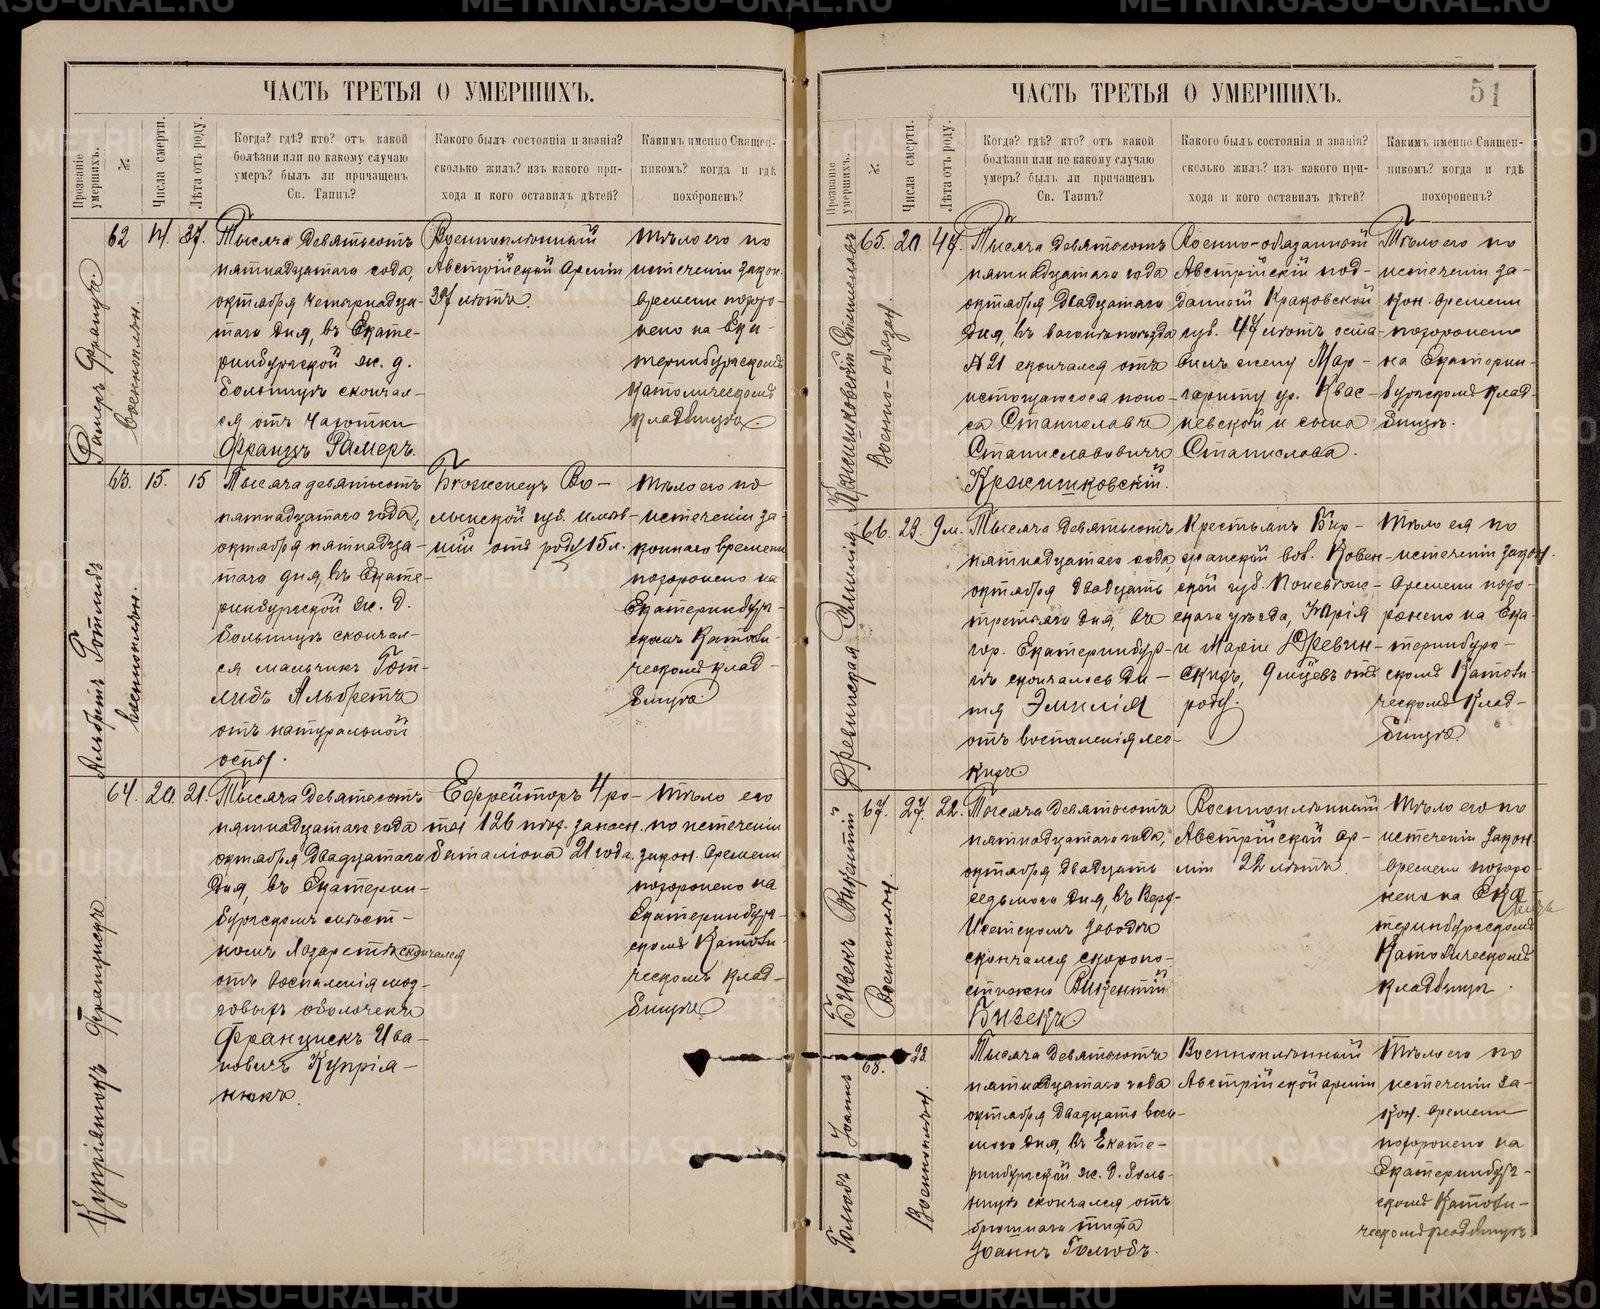 ЧАСТЬ ТРЕТЬЯ О УМЕРШИХЪ.
Прозваніе умершихъ.
№
Числа смерти.
Лѣта отъ роду.
Когда? гдѣ? кто? отъ какой
болѣзни или по какому случаю
умеръ? былъ ли причащенъ
Св. Таинъ?
Какого былъ состоянія и званія?
сколько жилъ? изъ какого при-
хода и кого оставилъ дѣтей?
Какимъ именно Священ-
никомъ? когда и гдѣ
похороненъ?
Рамеръ Францъ.
военноплѣн.
62
14.
37.
Тысяча девятьсотъ
пятнадцатаго года,
октября четырнадца-
таго дня, въ Екате-
ринбургской ж. д.
больницѣ скончал-
ся отъ чахотки
Францъ Рамеръ.
Военноплѣнный
Австрійской арміи
37 лѣтъ.
Тѣло его по
истеченіи закон.
времени похоро-
нено на Ека-
теринбургскомъ
католическомъ
кладбищѣ.
Альбретъ Готлибъ
военноплѣн.
63.
15.
15
Тысяча девятьсотъ
пятнадцатаго года,
октября пятнадца-
таго дня, въ Екате-
ринбургской ж. д.
больницѣ скончал-
ся мальчикъ Гот-
либъ Альбретъ
отъ натуральной
оспы.
Бѣженецъ Во-
лынской губ. имѣв-
шій отъ роду 15 л.
Тѣло его по
истеченіи за-
коннаго времени
похоронено на
Екатеринбург-
скомъ Католи-
ческомъ клад-
бищѣ.
Купріянюкъ Францискъ
64.
20.
21.
Тысяча девятьсотъ
пятнадцатаго года
октября двадцатаго
дня, въ Екатерин-
бургскомъ мѣст-
номъ лазаретѣ скончался
отъ воспаленія моз-
говыхъ оболочекъ
Францискъ Ива-
новичъ Купрія-
нюкъ.
Ефрейторъ 4 ро-
ты 126 пѣх. запасн.
баталіона 21 года.
Тѣло его
по истеченіи
закон. времени
похоронено на
Екатеринбург-
скомъ Католи-
ческомъ клад-
бищѣ
ЧАСТЬ ТРЕТЬЯ О УМЕРШИХЪ.
51
Прозваніе умершихъ.
№
Числа смерти.
Лѣта отъ роду.
Когда? гдѣ? кто? отъ какой
болѣзни или по какому случаю
умеръ? былъ ли причащенъ
Св. Таинъ?
Какого былъ состоянія и званія?
сколько жилъ? изъ какого при-
хода и кого оставилъ дѣтей?
Какимъ именно Священ-
никомъ? когда и гдѣ
похороненъ?
Кржишковскій Станиславъ
Военно-обязан.
65.
20.
47.
Тысяча девятьсотъ
пятнадцатаго года
октября двадцатаго
дня, въ вагонѣ поѣзда
№ 21 скончался отъ
истощающаго поно-
са Станиславъ
Станиславовичъ
Кржишковскій.
Военно-обязанный
Австрійскій под-
данный Краковской
губ. 47 лѣтъ, оста-
вилъ жену Мар-
гариту ур. Квас-
невской и сына
Станислава.
Тѣло его по
истеченіи за-
кон. времени
похоронено
на Екатерин-
бургскомъ клад-
бищѣ.
Древинская Эмилія
66.
23.
9 м.
Тысяча девятьсотъ
пятнадцатаго года,
октября двадцать
третьяго дня, въ
гор. Екатеринбур-
гѣ скончалось ди-
тя Эмилія
отъ воспаленія лег-
кихъ
Крестьянъ Вир-
вол. Ковен-
ской губ. Поневѣж-
скаго уѣзда, Юрія
и Маріи Древин-
скихъ, 9 мѣцевъ отъ
роду.
Тѣло ея по
истеченіи закон.
времени похо-
ронено на Ека-
теринбург-
скомъ Католи-
ческомъ клад-
бищѣ.
Бизекъ Викентій
Военноплѣн.
67.
27.
22.
Тысяча девятьсотъ
пятнадцатаго года,
октября двадцать
седьмого дня, въ Верх-
Исетскомъ заводѣ
скончался скоропо-
стижно Викентій
Бизекъ.
Военноплѣнный
Австрійской ар-
міи 22 лѣтъ.
Тѣло его по
истеченіи закон.
времени похоро-
нено на Ека-
теринбургскомъ
Католическомъ
кладбищѣ.
Голюбъ Іоаннъ
Военноплѣн.
68.
28.
Тысяча девятьсотъ
пятнадцатаго года
октября двадцать вось-
мого дня, въ Екате-
ринбургской ж. д. боль-
ницѣ скончался отъ
брюшного тифа
Іоаннъ Голюбъ.
Военноплѣнный
Австрійской арміи
Тѣло его по
истеченіи за-
кон. времени
похоронено на
Екатеринбург-
скомъ Католи-
ческомъ кладбищѣ.
METRIKI.GASO-URAL.RU